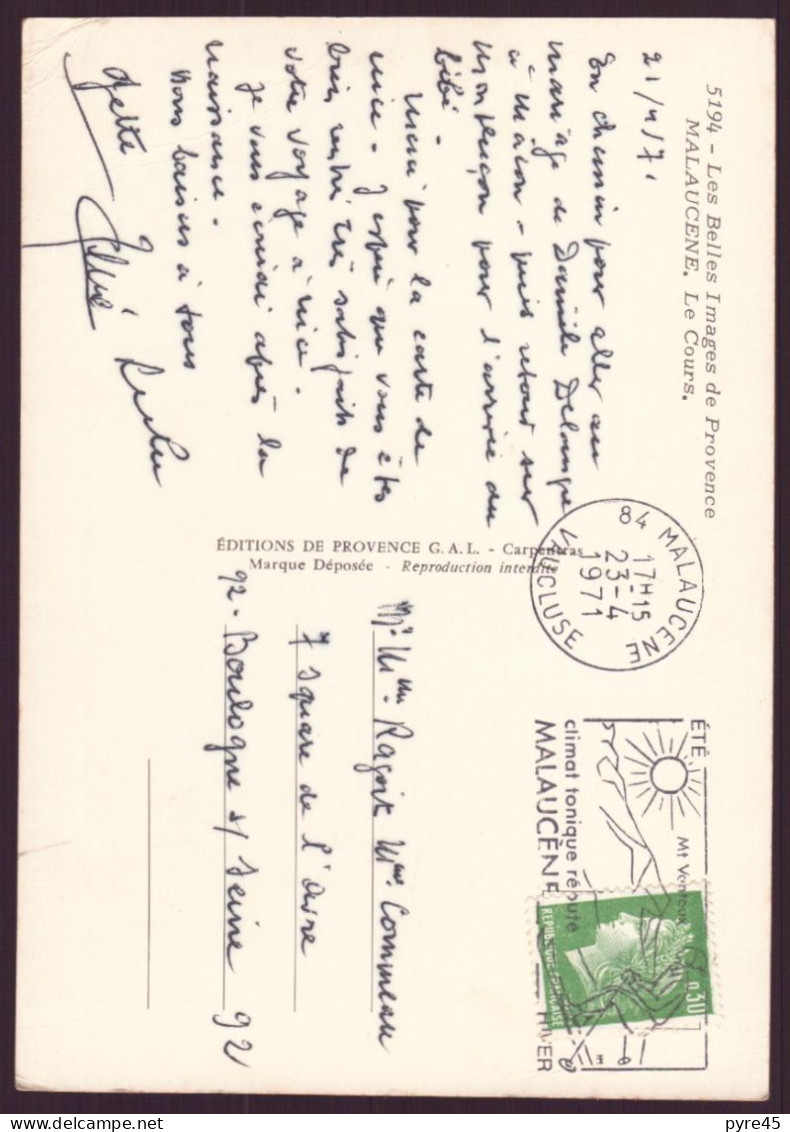 5194 - Les Belles Images de Provence
MALAUCENE. Le Cours.
21/4/71
En chemin pour aller au
mariage de Danièle Delange
à Mâcon - puis retour sur
Montluçon pour l'arrivée du
bébé -
Merci pour la carte de
nice - J'espère que vous êtes
bien rentré très satisfaits de
votre voyage à nice.
Je vous écrirai après la
naissance -
Bons baisers à tous
ÉDITIONS DE PROVENCE G.A.L. - Carpentras
Marque Déposée - Reproduction interdite
84 MALAUCENE
17H15
23-4
1971
VAUCLUSE
ÉTÉ
Mt Ventoux
climat tonique réputé
MALAUCÈNE
HIVER
0,30
REPUBLIQUE FRANÇAISE
Mr Mme Ragoit Mme Commeau
7 square de l'
92 - Boulogne s/ Seine 92
pyre45